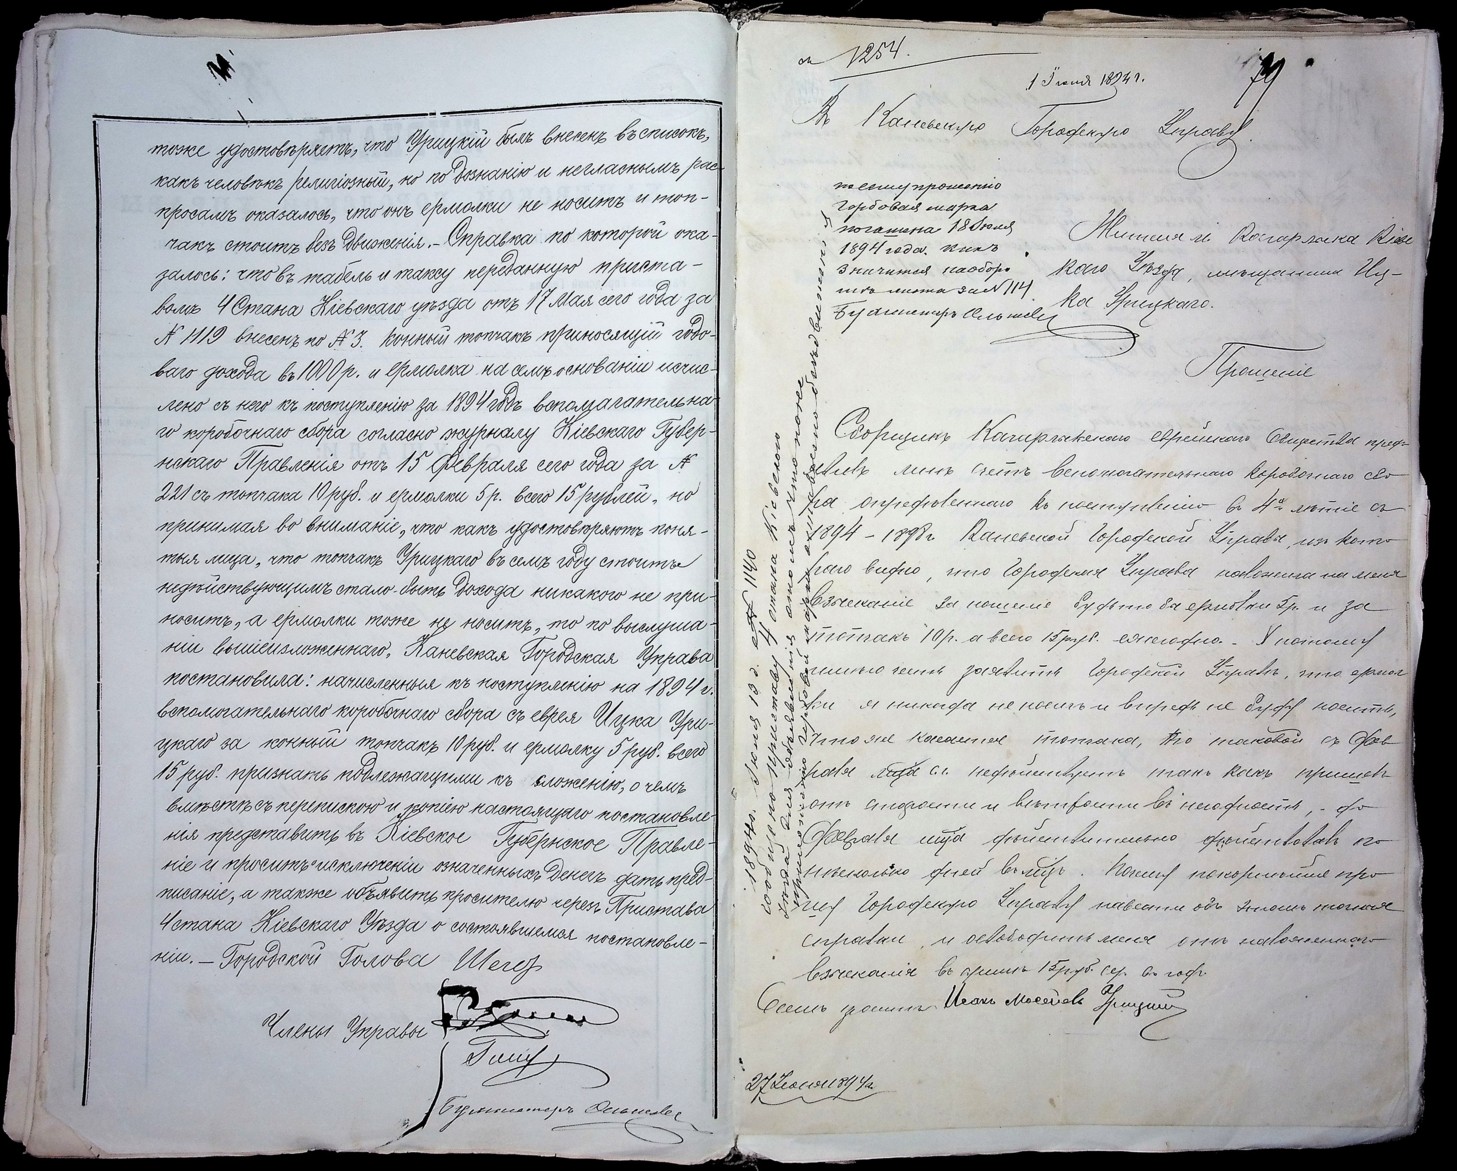 тоже удостовѣряетъ, что Урицкій былъ внесенъ въ списокъ,
какъ человѣкъ религіозный, но по дознанію и негласнымъ рас-
просамъ оказалось, что онъ ермолки не носитъ и топ-
чакъ стоитъ безъ движенія. – Справка по которой ока-
залось: что въ табель и таксу переданную приста-
вомъ 4 Стана Кіевскаго уѣзда отъ 17 Мая сего года за
№ 1119 внесенъ по № 3. конный топчакъ приносящій годо-
ваго дохода въ 1000 р. и ермолка на семъ основаніи исчис-
лено съ него къ поступленію за 1894 годъ вспомагательна-
го коробочнаго сбора согласно журналу Кіевскаго Губер-
нскаго Правленія отъ 15 Февраля сего года за №
221 съ топчака 10 руб. и ермолки 5 р. всего 15 рублей, но
принимая во вниманіе, что какъ удостовѣряютъ поня-
тыя лица, что топчакъ Урицкаго въ семъ году стоитъ
недѣйствующимъ стало быть дохода никакого не при-
носитъ, а ермолки тоже не носитъ, то по выслуша-
ніи вышеизложеннаго, Каневская Городская Управа
постановила: начисленныя къ поступленію на 1894 г.
вспомогательнаго коробочнаго сбора съ еврея Ицка Ури-
цкаго за конный топчакъ 10 руб. и ермолку 5 руб. всего
15 руб. признать подлежащими къ сложенію, о чемъ
вмѣстѣ съ перепискою и копію настоящаго постановле-
нія представить въ Кіевское Губернское Правле-
ніе и просить исключеніи означенныхъ денегъ дать пред-
писаніе, а также объявить просителю черезъ Пристава
4 стана Кіевскаго Уѣзда о состоявшемся постановле-
ніи. – Городской Голова
Члены Управы
Бухгалтеръ
№ 1254.
1 Іюля 1894 г.
79
Въ Каневскую Городскую Управу.
по сему прошенію
гербовая марка
погашена 18 Іюля
1894 года. какъ
значится наоборо-
тѣ листа за № 114
Бухгалтеръ
Жителя м Кагарлыка Кіевс
каго Уѣзда, мѣщанина Иц-
ка Урицкаго.
Прошеніе
1894 г. Іюля 19 д. № 1140
сообщено Приставу 4 стана Кіевскаго
уѣзда для объявленія о томъ что
Сборщикъ Кагарлыкскаго еврейскаго Общества пред-
явилъ мнѣ счетъ вспомогательнаго коробочнаго сбо-
ра опредѣленнаго къ поступленію въ 4хъ лѣтіе съ
1894 – 1898 г Каневской Городской Управы, изъ кото-
раго видно, что Городская Управа наложила на меня
взысканіе за ношеніе будьто бы ермолки 5 р. и за
топчакъ 10 р. а всего 15 руб. ежегодно. – А потому
честь заявить Городской Управѣ, что ермол
ки я никогда не носилъ и впредь не буду носить,
Что же касается топчака, то таковой съ Фев
раля м-ца с.г. недѣйствуетъ такъ какъ пришелъ
отъ старости и ветхости въ негодность, – до
Февраля м-ца дѣйствительно дѣйствовалъ по
нѣсколько дней въ м-цъ. Посему покорнѣйше про-
шу Городскую Управу навести объ этомъ точныя
справки, и освободить меня отъ наложеннаго
взысканія въ суммѣ 15 руб. сер. въ годъ
Къ сему прошенію Ицко Мосеевъ Урицкій
27 Іюня 1894 г.